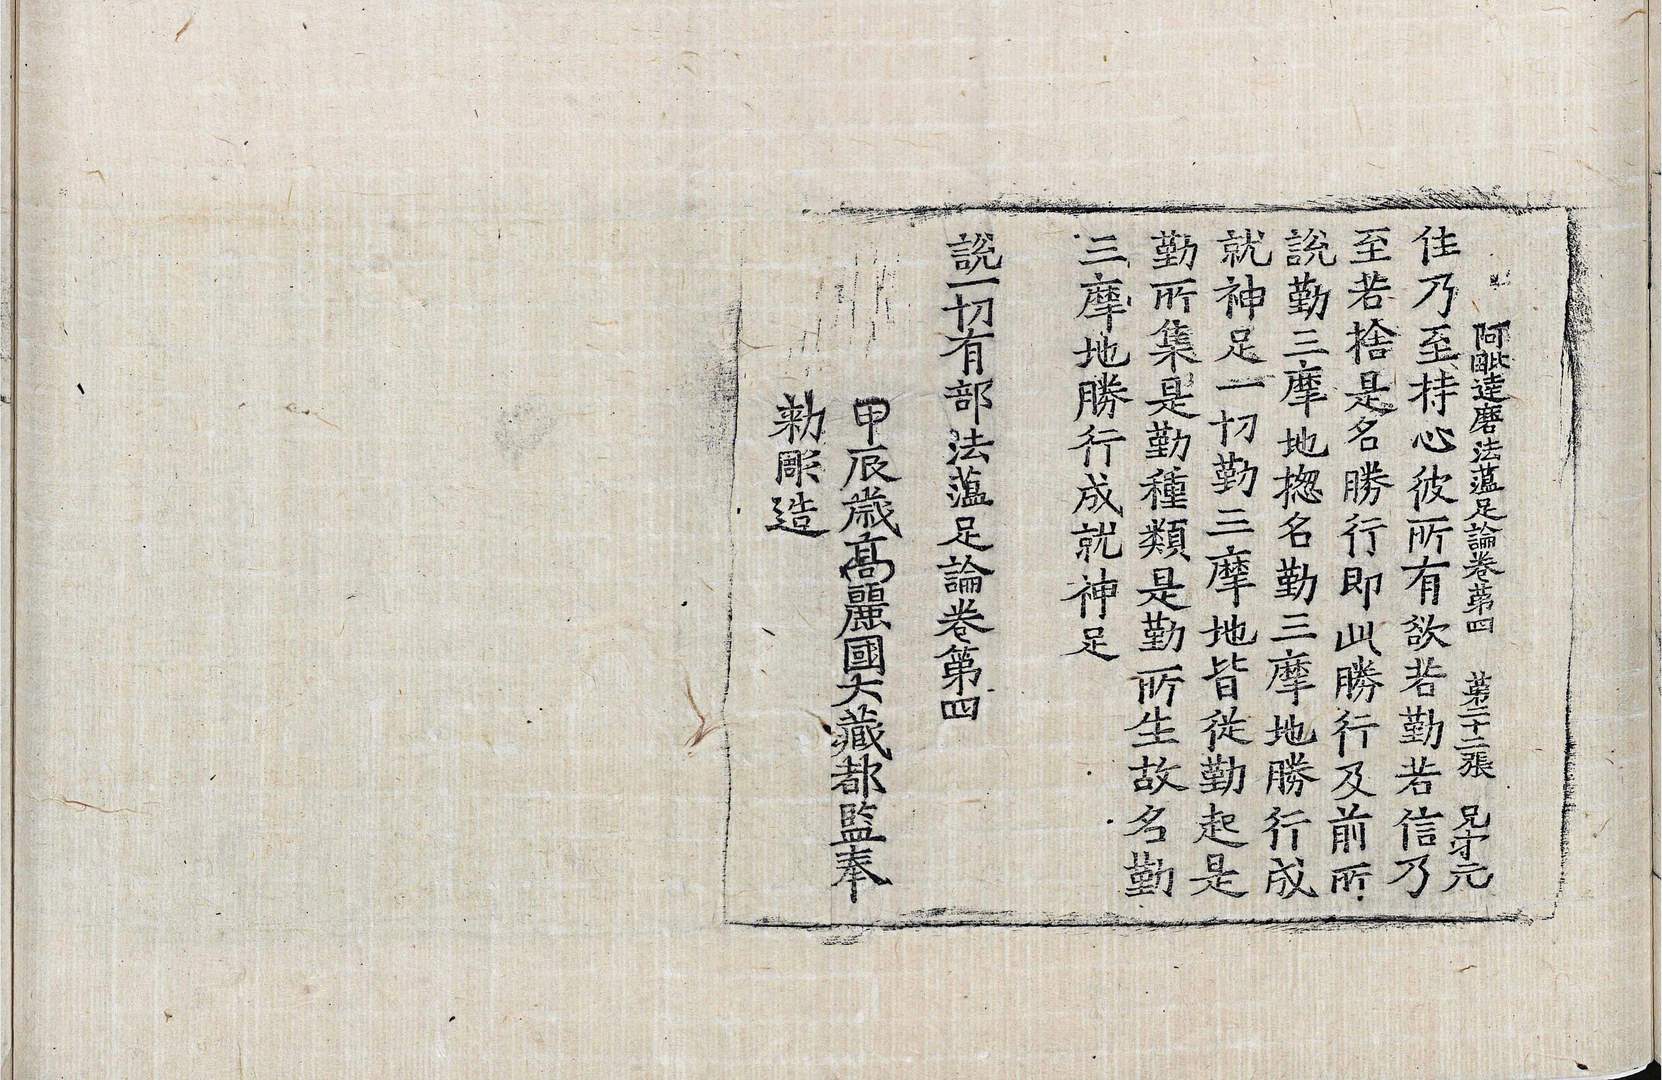 阿毗達磨法蘊足論卷第四 第二十二張 兄 守元
住乃至持心彼所有欲若勤若信乃
至若捨是名勝行即此勝行及前所
說勤三摩地揔名勤三摩地勝行成
就神足一切勤三摩地皆從勤起是
勤所集是勤種類是勤所生故名勤
三摩地勝行成就神足
說一切有部法蘊足論卷第四
甲辰歲高麗國大藏都監奉
勑彫造